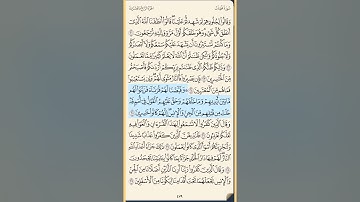 سورة فصلت الجزء الرابع والعشرون
وَقَالُوا۟ لِجُلُودِهِمْ لِمَ شَهِدتُّمْ عَلَيْنَا ۖ قَالُوٓا۟ أَنطَقَنَا ٱللَّهُ ٱلَّذِىٓ
أَنطَقَ كُلَّ شَىْءٍ وَهُوَ خَلَقَكُمْ أَوَّلَ مَرَّةٍ وَإِلَيْهِ تُرْجَعُونَ ٢١
وَمَا كُنتُمْ تَسْتَتِرُونَ أَن يَشْهَدَ عَلَيْكُمْ سَمْعُكُمْ وَلَآ أَبْصَٰرُكُمْ
وَلَا جُلُودُكُمْ وَلَٰكِن ظَنَنتُمْ أَنَّ ٱللَّهَ لَا يَعْلَمُ كَثِيرًا مِّمَّا تَعْمَلُونَ ٢٢
وَذَٰلِكُمْ ظَنُّكُمُ ٱلَّذِى ظَنَنتُم بِرَبِّكُمْ أَرْدَىٰكُمْ فَأَصْبَحْتُم
مِّنَ ٱلْخَٰسِرِينَ ٢٣ فَإِن يَصْبِرُوا۟ فَٱلنَّارُ مَثْوًى لَّهُمْ ۖ وَإِن يَسْتَعْتِبُوا۟
فَمَا هُم مِّنَ ٱلْمُعْتَبِينَ ٢٤ ۞ وَقَيَّضْنَا لَهُمْ قُرَنَآءَ فَزَيَّنُوا۟ لَهُم
مَّا بَيْنَ أَيْدِيهِمْ وَمَا خَلْفَهُمْ وَحَقَّ عَلَيْهِمُ ٱلْقَوْلُ فِىٓ أُمَمٍ قَدْ
خَلَتْ مِن قَبْلِهِم مِّنَ ٱلْجِنِّ وَٱلْإِنسِ ۖ إِنَّهُمْ كَانُوا۟ خَٰسِرِينَ ٢٥
وَقَالَ ٱلَّذِينَ كَفَرُوا۟ لَا تَسْمَعُوا۟ لِهَٰذَا ٱلْقُرْءَانِ وَٱلْغَوْا۟ فِيهِ
لَعَلَّكُمْ تَغْلِبُونَ ٢٦ فَلَنُذِيقَنَّ ٱلَّذِينَ كَفَرُوا۟ عَذَابًا شَدِيدًا
وَلَنَجْزِيَنَّهُمْ أَسْوَأَ ٱلَّذِى كَانُوا۟ يَعْمَلُونَ ٢٧ ذَٰلِكَ جَزَآءُ أَعْدَآءِ
ٱللَّهِ ٱلنَّارُ ۖ لَهُمْ فِيهَا دَارُ ٱلْخُلْدِ ۖ جَزَآءًۢ بِمَا كَانُوا۟ بِـَٔايَٰتِنَا يَجْحَدُونَ ٢٨
وَقَالَ ٱلَّذِينَ كَفَرُوا۟ رَبَّنَآ أَرِنَا ٱلَّذَيْنِ أَضَلَّانَا مِنَ ٱلْجِنِّ
وَٱلْإِنسِ نَجْعَلْهُمَا تَحْتَ أَقْدَامِنَا لِيَكُونَا مِنَ ٱلْأَسْفَلِينَ ٢٩
٤٧٩